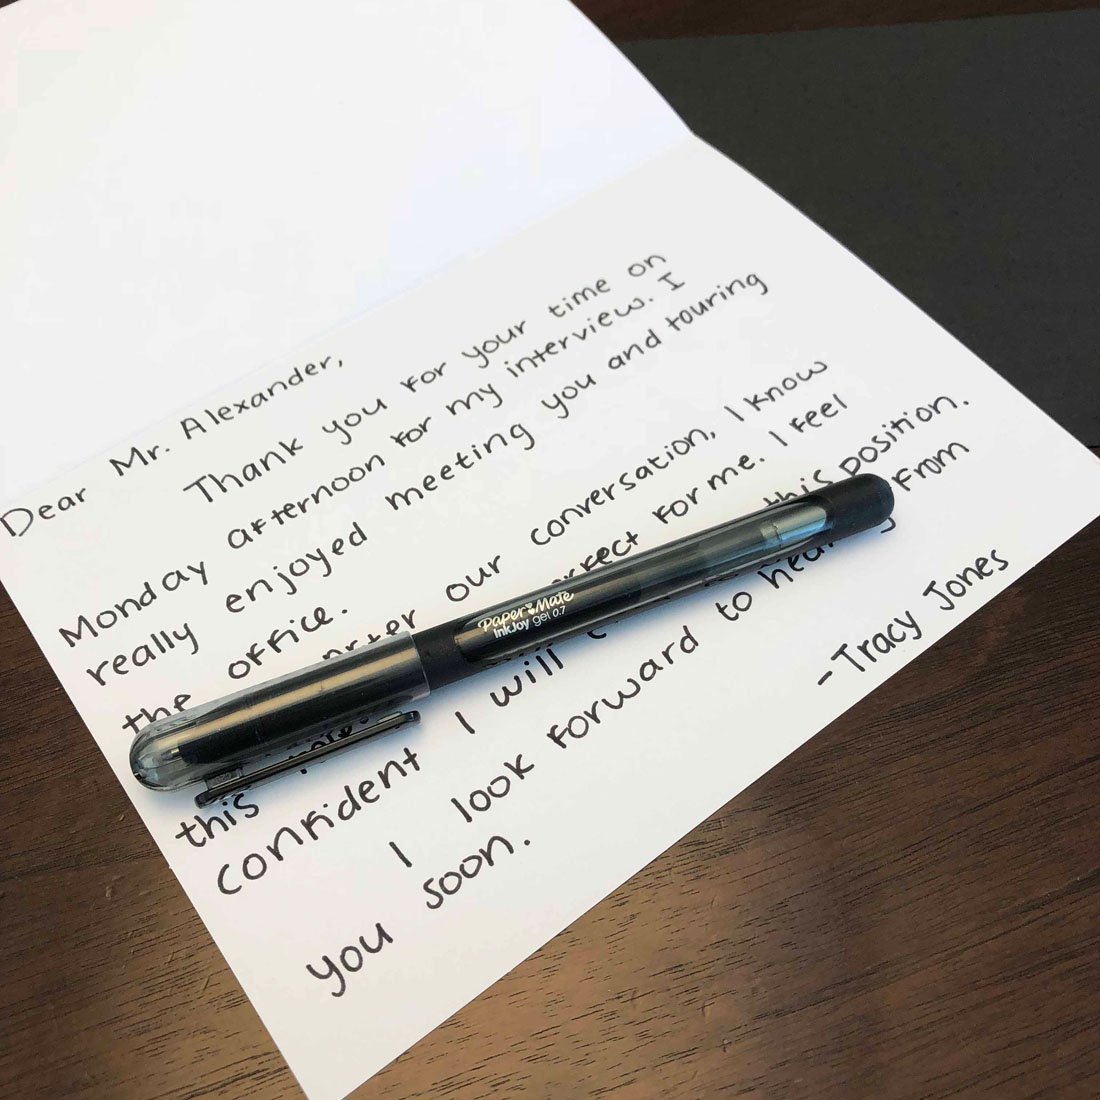 Dear Mr. Alexander,
Thank you for your time on
Monday afternoon for my interview. I
really enjoyed meeting you and touring
the office.
after our conversation, I know
this role perfect for me. I feel
confident I will this position.
I look forward to hearing from
you soon.
-Tracy Jones
Paper Mate
InkJoy gel 0.7